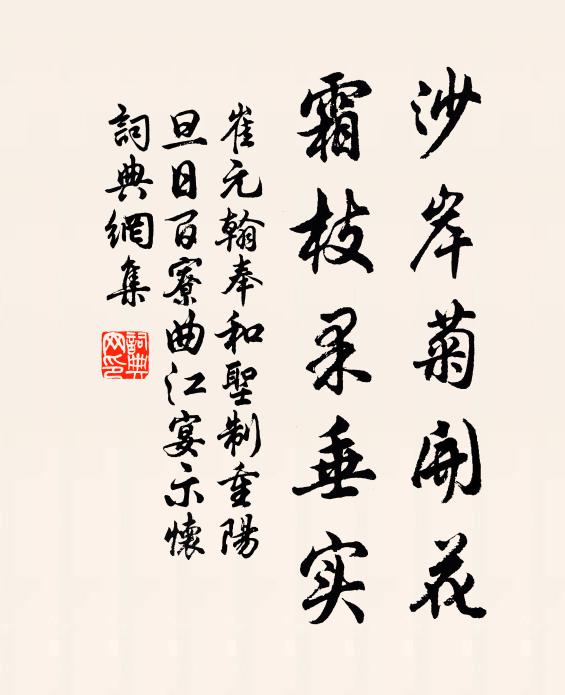 沙岸菊開花
霜枝果垂实
崔元翰奉和聖制重陽
旦日百寮曲江宴示懷
詞典網集
詞典网印